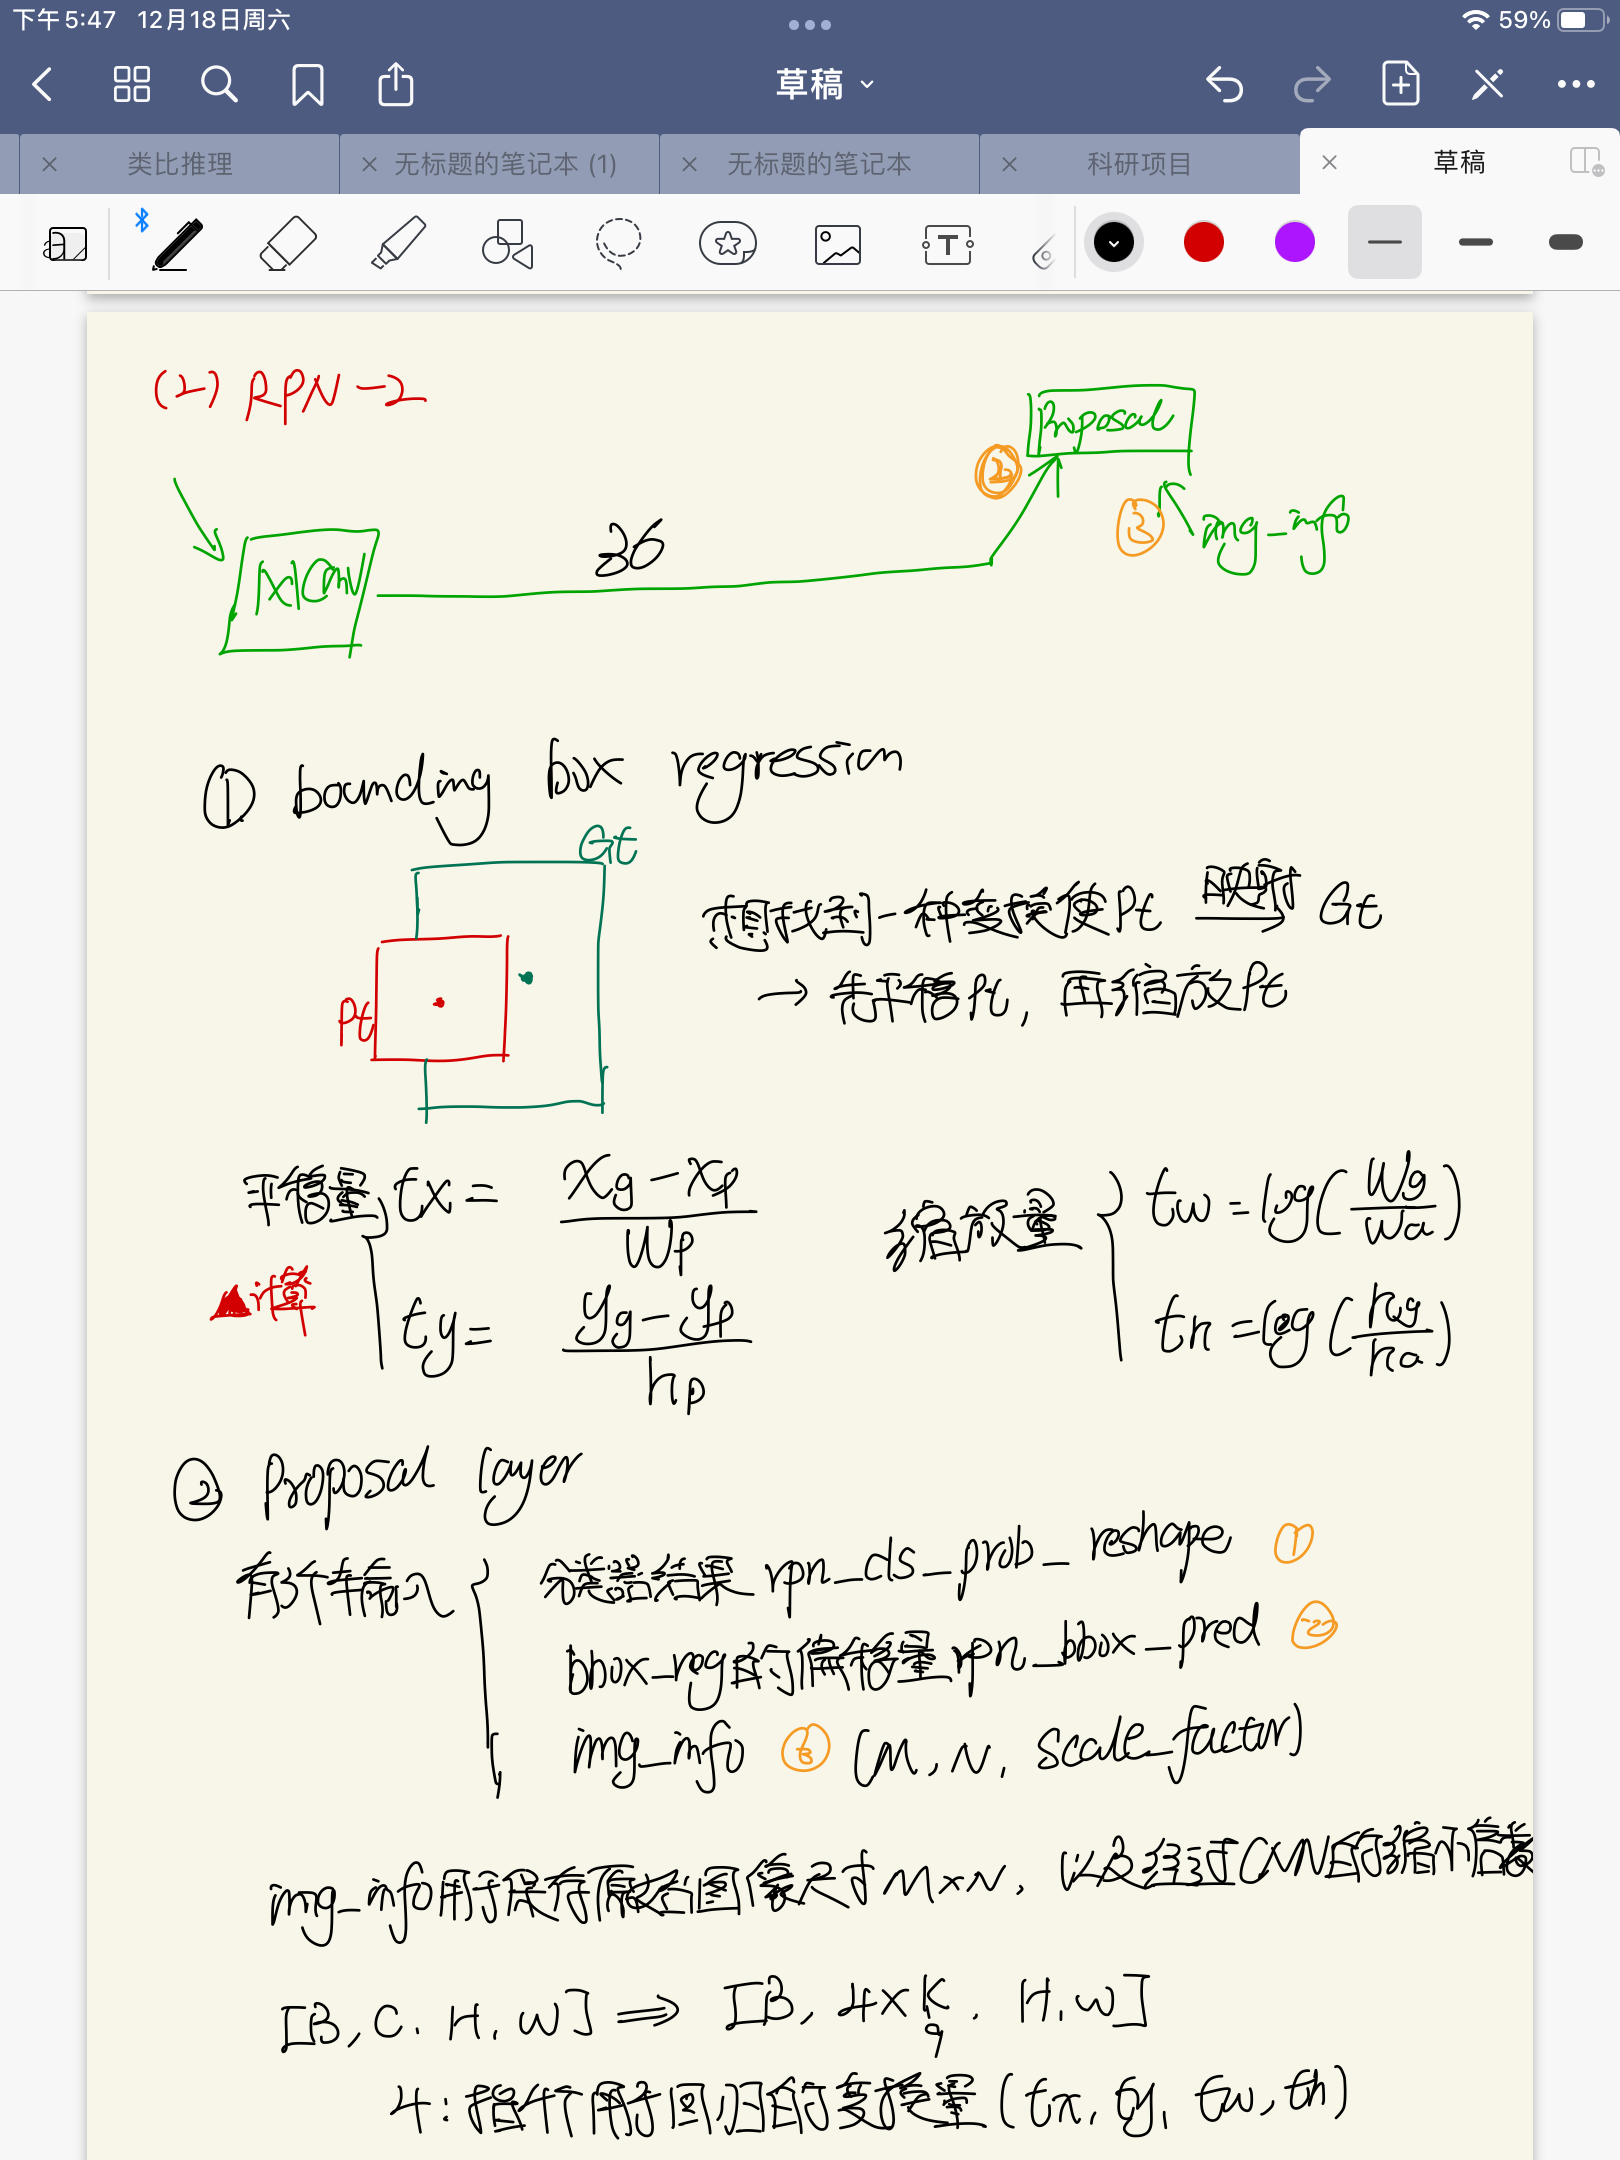 下午5:47 12月18日周六 59%
草稿
类比推理 无标题的笔记本 (1) 无标题的笔记本 科研项目 草稿
(2) RPN-2
Proposal
②
③ img_info
36
1x1Conv
① bounding box regression
Gt
想找到一种变换使Pt 映射 Gt
→ 先平移Pt, 再缩放Pt
Pt
平移量 tx = xg-xp / wp
缩放量 tw = log(wg/wa)
▲计算
ty = yg-yp / hp
th = log(hg/ha)
② Proposal layer
有3个输入
分类器结果 rpn_cls_prob_reshape ①
bbox_reg的偏移量rpn_bbox_pred ②
img_info ③ (M, N, scale_factor)
img_info用于保存原始图像尺寸M×N, 以及经过CNN的缩小倍数
[B, C, H, W] ⇒ [B, 4×K, H, W]
9
4:指4个用于回归的变换量(tx, ty, tw, th)